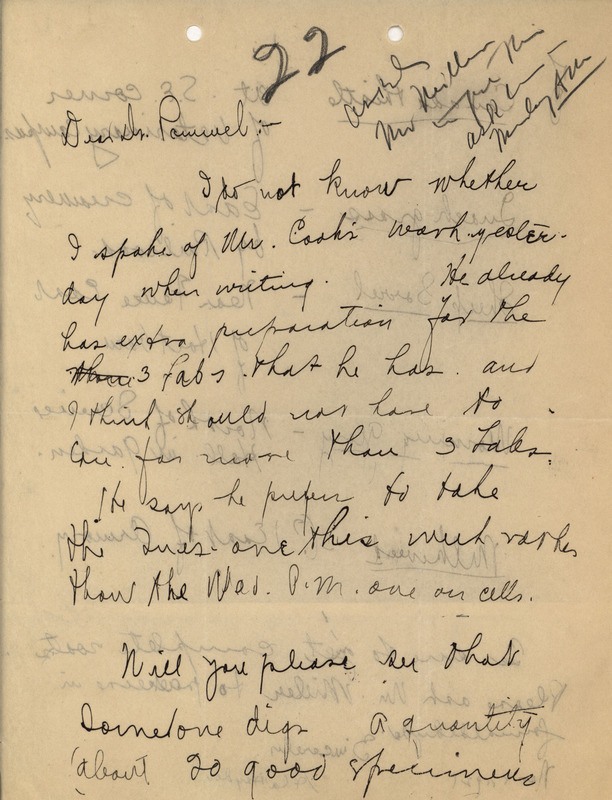 22
Asked
Mr
ask
Dear Dr. Pammel:-
I do not know whether
I spoke of Mr. Cook's work yester-
day when writing. He already
has extra preparation for the
3 Labs. that he has. and
I think should not have to
care for more than 3 Labs.
He says he prefers to take
the Tues. one this week rather
than the Wed. P.M. one on cells.
Will you please see that
someone digs a quantity
(about 20 good specimens